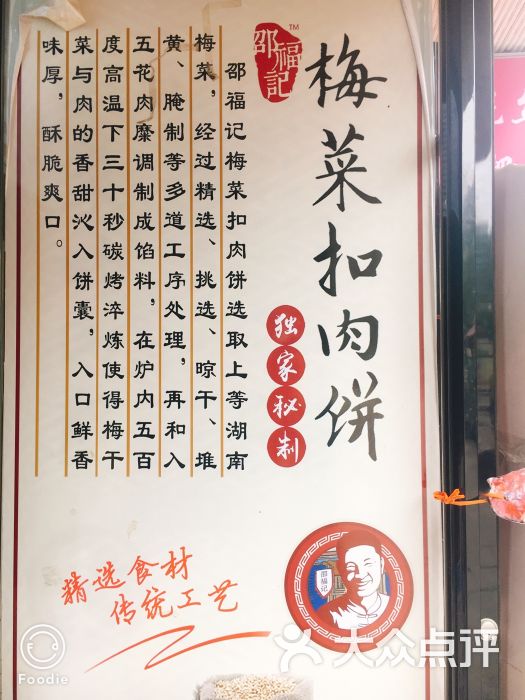 邵福記
TM
梅菜扣肉饼
独家秘制
邵福记梅菜扣肉饼选取上等湖南
梅菜，经过精选、挑选、晾干、堆
黄、腌制等多道工序处理，再和入
五花肉糜调制成馅料，在炉内五百
度高温下三十秒碳烤淬炼使得梅干
菜与肉的香甜沁入饼囊，入口鲜香
味厚，酥脆爽口。
精选食材
传统工艺
邵福记
Foodie
大众点评